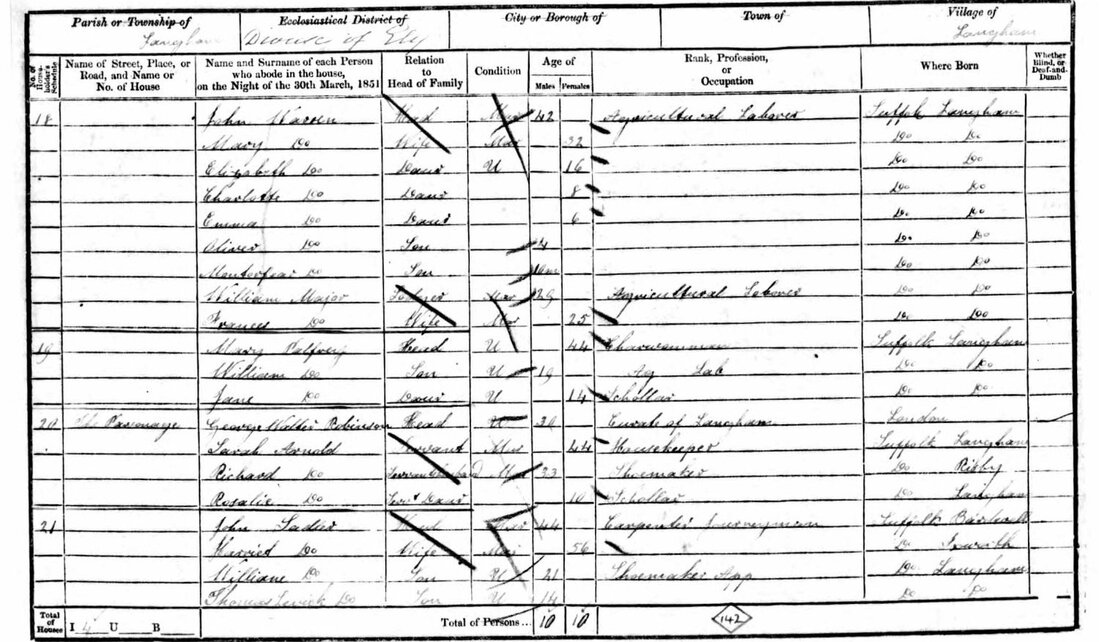 Parish or Township of Ecclesiastical District of City or Borough of Town of Village of
Langham Diocese of Ely Langham
No. of Householder's Schedule Name of Street, Place, or Road, and Name or No. of House Name and Surname of each Person who abode in the house, on the Night of the 30th March, 1851 Relation to Head of Family Condition Age of Males Females Rank, Profession, or Occupation Where Born Whether Blind, or Deaf-and-Dumb
18 John Warren Head Mar 42 Agricultural Laborer Suffolk Langham
Mary Do Wife Mar 32 Do Do
Elizabeth Do Daur U 16 Do Do
Charlotte Do Daur 8 Do Do
Emma Do Daur 6 Do Do
Oliver Do Son 4 Do Do
Do Son 10m Do Do
William Major Lodger Mar 29 Agricultural Laborer Do Do
Frances Do Wife Mar 25 Do Do
19 Mary Palfrey Head U 44 Charwoman Suffolk Langham
William Do Son U 19 Ag Lab Do Do
Jane Do Daur U 14 Schollar Do Do
20 The Parsonage George Walter Robinson Head U 30 Curate of Langham London
Sarah Arnold Servant Mar 44 Housekeeper Suffolk Langham
Richard Do Mar 33 Shoemaker Do Risby
Rosalie Do Servt Daur 10 Schollar Do Langham
21 John Sadler Head Mar 44 Carpenter Journeyman Suffolk
Harriet Do Wife Mar 56 Do Ixworth
William Do Son U 21 Shoemaker App Do Langham
Thomas Levick Do Son U 14 Do Do
Total of Houses I 4 U B Total of Persons... 10 10 142